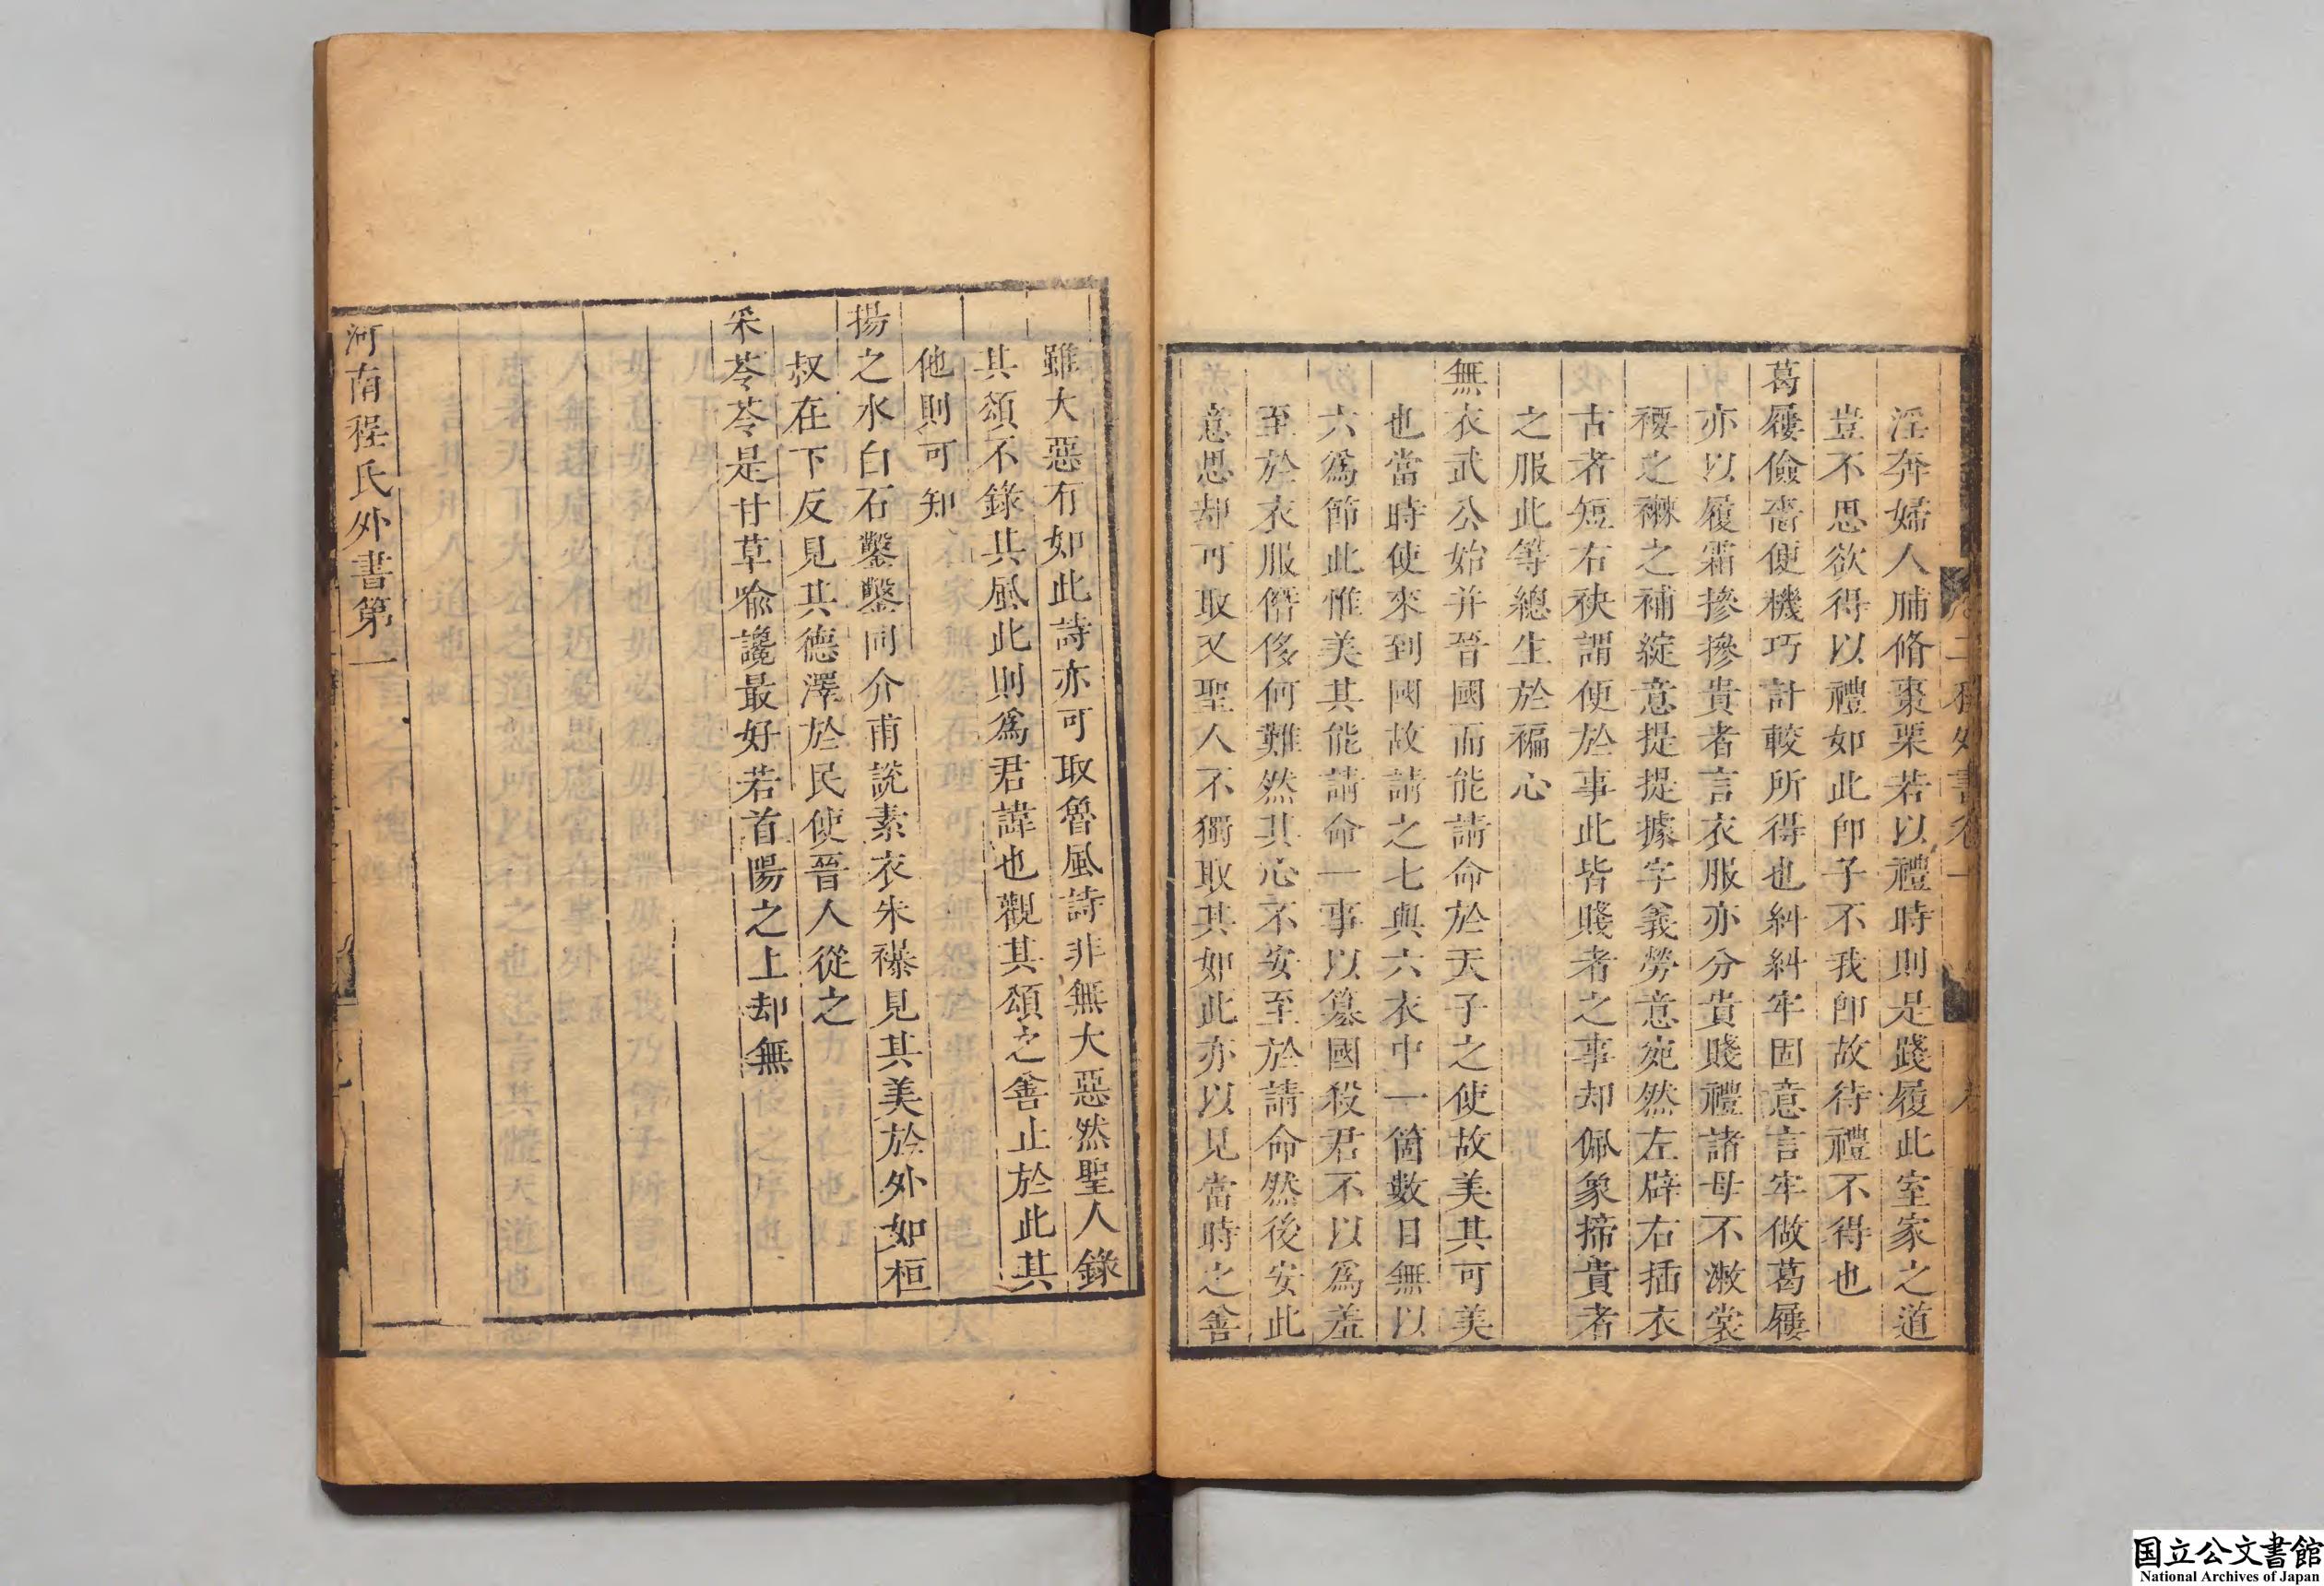 淫奔婦人脯脩棗栗若以禮時則是踐履此室家之道
豈不思欲得以禮如此即子不我即故待禮不得也
葛屨儉嗇便機巧計較所得也糾糾牢固意言牢做葛屨
亦以履霜摻摻貴者言衣服亦分貴賤禮諸母不漱裳
䙅之襋之補綻意提提據字義勞意宛然左辟右插衣
古者短右袂謂便於事此皆賤者之事却佩象揥貴者
之服此等總生於褊心
無衣武公始并晉國而能請命於天子之使故美其可美
也當時使來到國故請之七與六衣中一箇數日無以
六爲節此惟美其能請命一事以簒國殺君不以爲羞
至於衣服僭侈何難然其心不安至於請命然後安此
意思却可取又聖人不獨取其如此亦以見當時之善
雖大惡有如此詩亦可取魯風詩非無大惡然聖人錄
其頌不錄其風此則爲君諱也觀其頌之善止於此其
他則可知
揚之水白石鑿鑿同介甫說素衣朱襮見其美於外如桓
叔在下反見其德澤於民使晉人從之
采苓苓是甘草喻讒最好若首陽之上却無
河南程氏外書第一
国立公文書館
National Archives of Japan